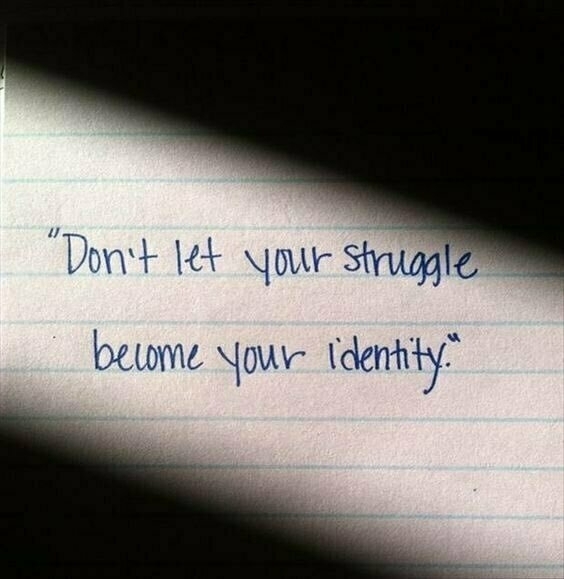 "Don't let your struggle
become your identity."